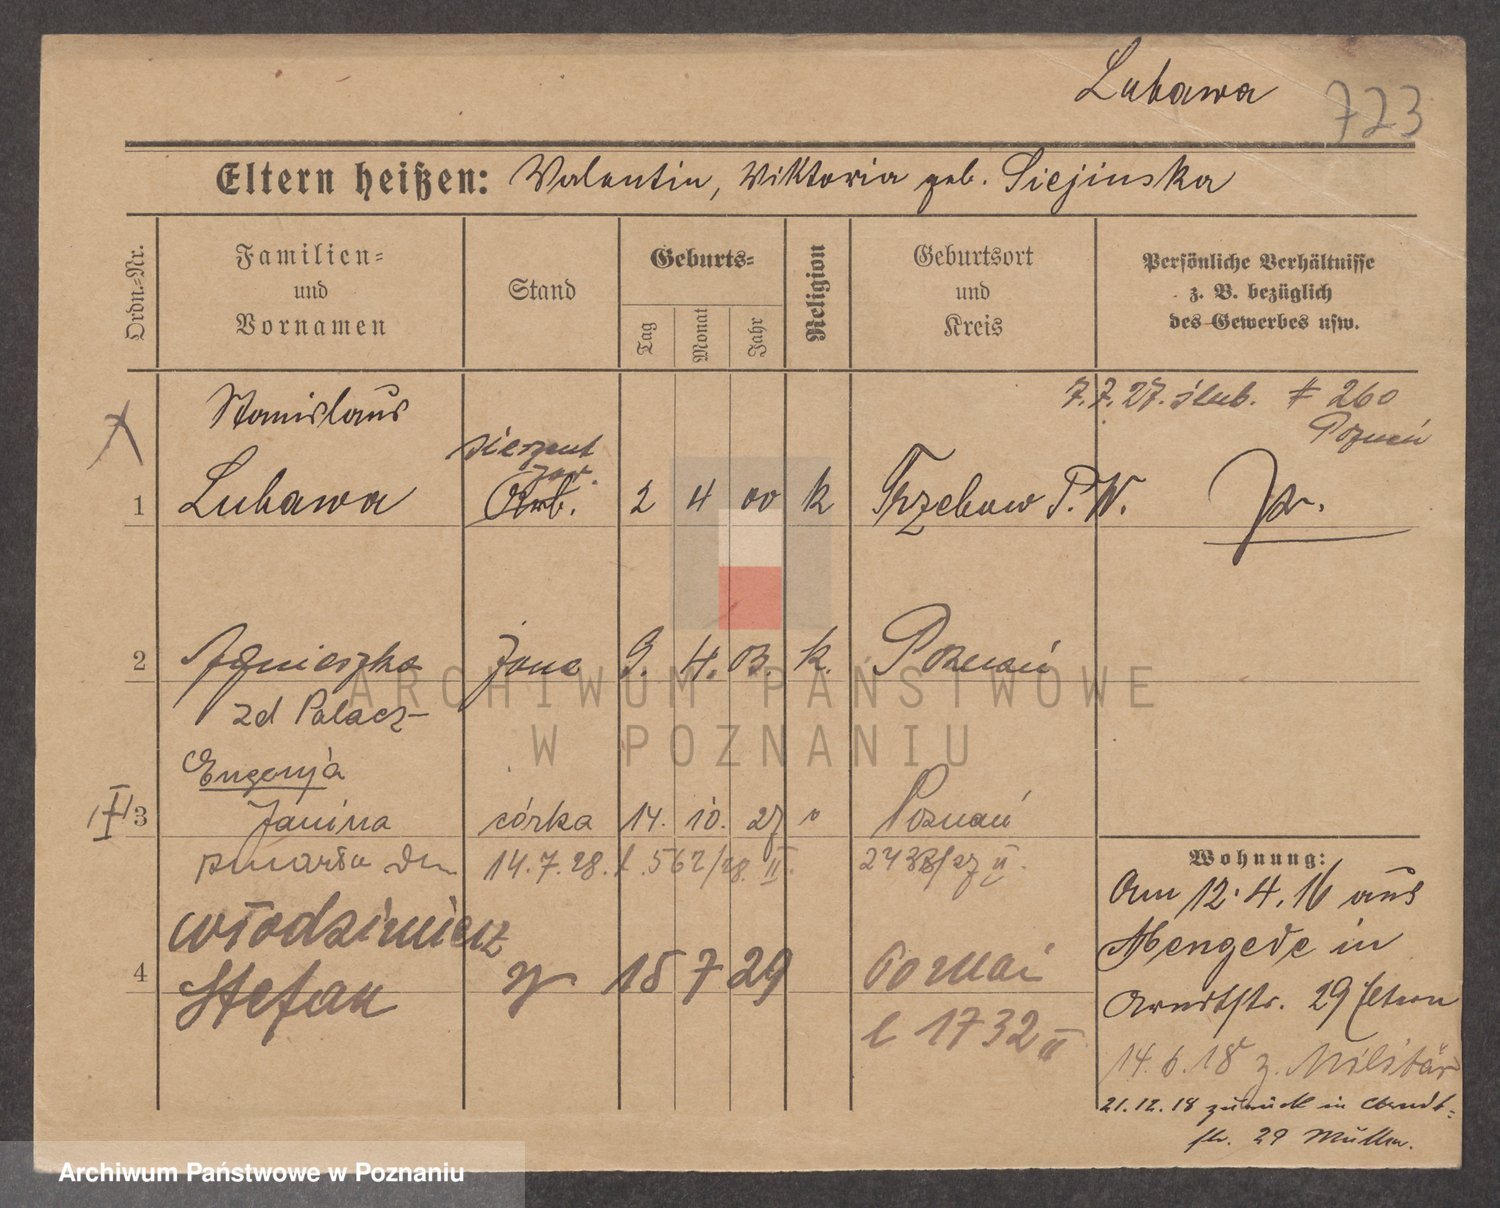 Lubawa 723
Eltern heißen: Valentin, Viktoria geb. Siejinska
Ordn.-Nr.
Familien-
und
Vornamen
Stand
Geburts-
Tag
Monat
Jahr
Religion
Geburtsort
und
Kreis
Persönliche Verhältnisse
z. B. bezüglich
des Gewerbes usw.
7.7.27. ślub. # 260
Poznań
Stanislaus
sierzant
zaw.
1 Lubawa Arb. 2 4 00 k Trzebaw P.W.
2 Agnieszka żona 9. 4. 03. k. Poznań
zd Palacz
Eugenja
3 Janina córka 14. 10. 27 " Poznań
zmarła dn. 14.7.28. l. 562/28. II. 2438/27 II.
Włodzimierz
4 Stefan 15 7 29 Poznań
l 1732 II
Wohnung:
Am 12.4.16 aus
Mengede in
Arndtstr. 29 Eltern
14.6.18 z. Militär
21.12.18 zurück in Arndt-
str. 29 Mutter.
ARCHIWUM PAŃSTWOWE
W POZNANIU
Archiwum Państwowe w Poznaniu